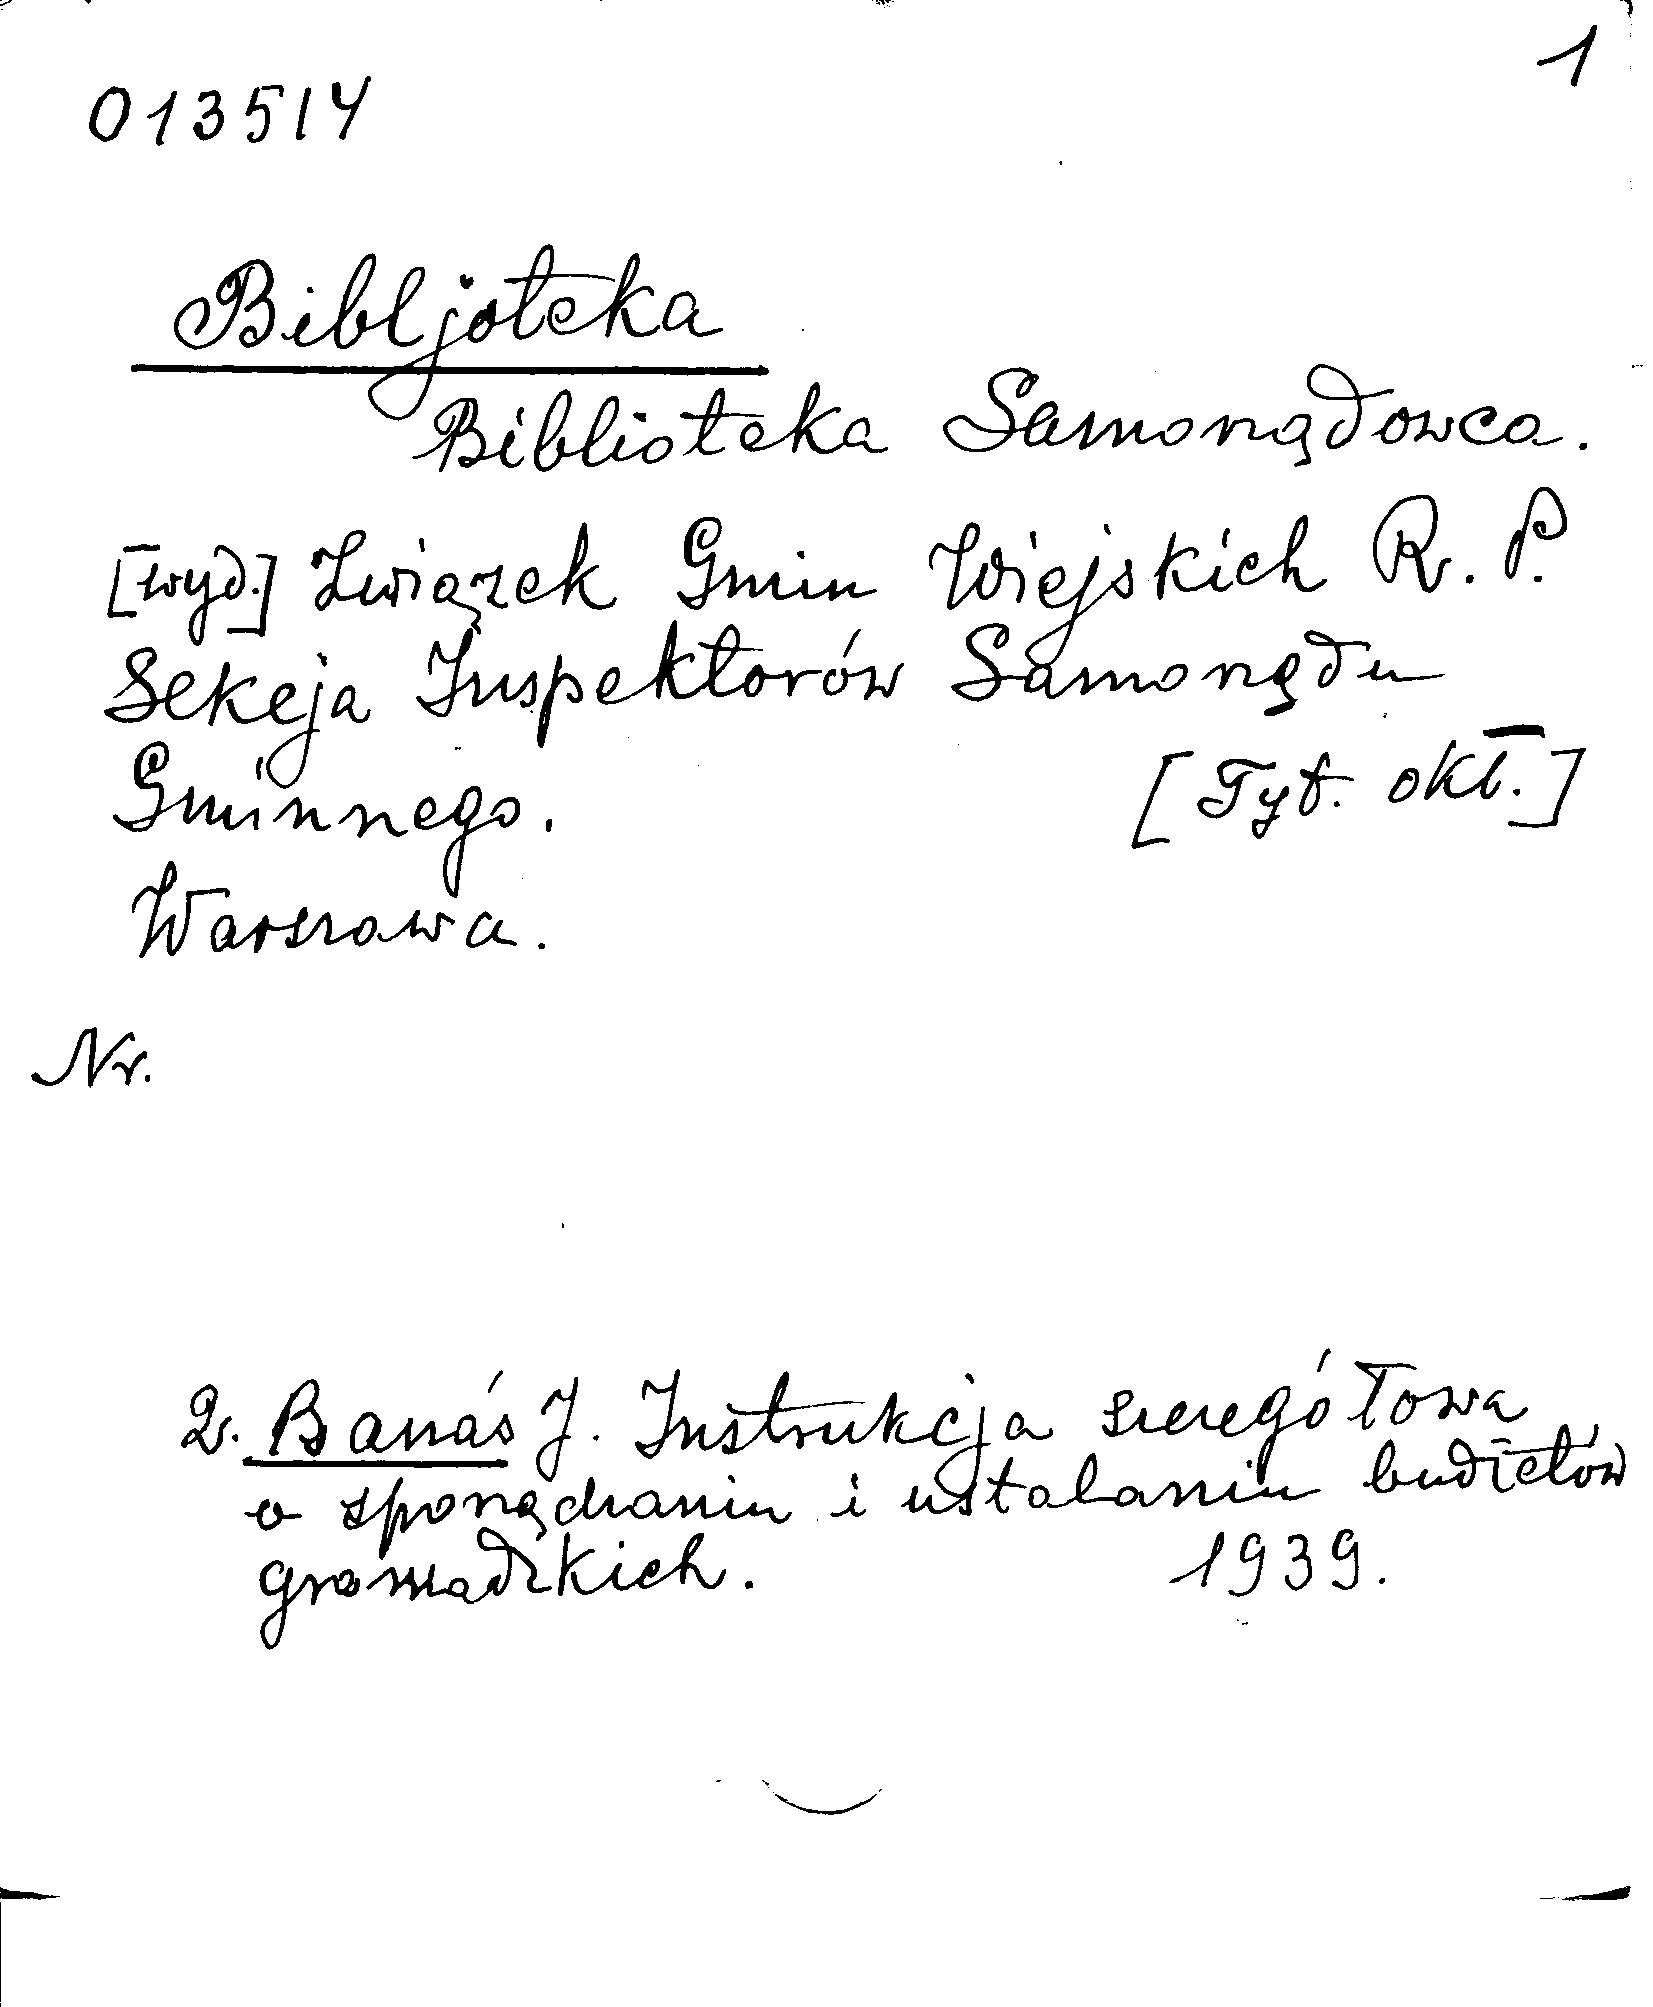 1
013514
Bibljoteka
Biblioteka Samorządowca.
[wyd.] Związek Gmin Wiejskich R. P.
Sekcja Inspektorów Samorządu
Gminnego. [Tyt. okł.]
Warszawa.
Nr.
2. Banaś J. Instrukcja szczegółowa
o sporządzaniu i ustalaniu budżetów
gromadzkich. 1939.